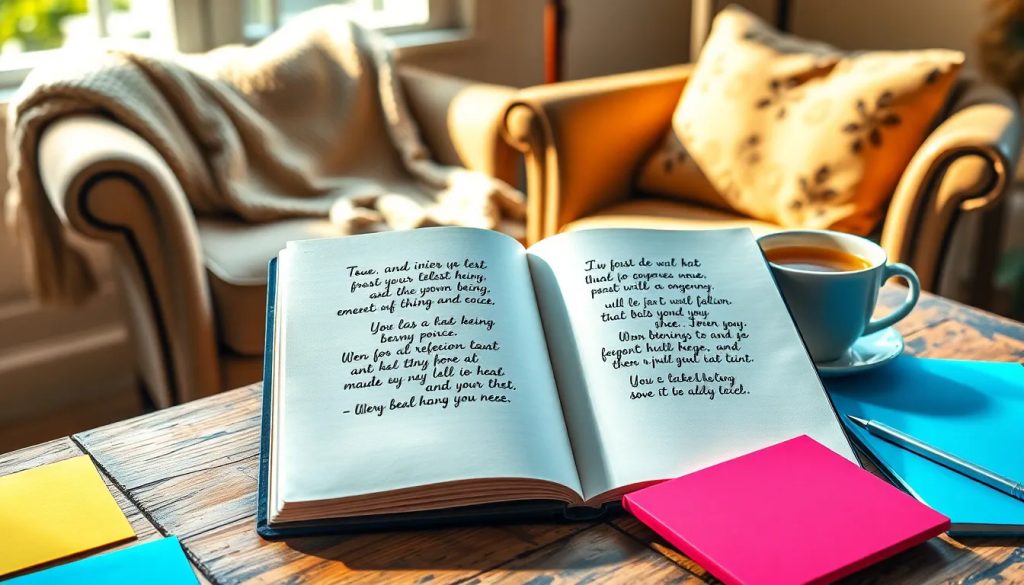 Toue, and inier ye lest
frost your Celesst heing,
and the yoovn being,
emeret of thing and coice.
You las a hat keing
besny poirce.
Wen fos al refecion taust
ant ksl tlhy hore at
maude ey ny lall io heal
and your thet.
– Wery beal hang you nese.
I w forsl de wal hat
thuat fo copyeres une,
past will a ongenny.
will be fart wosl fallow.
that bals yond you
she... Ireen you.
Worn blenings to and je
feegont hull hege, and
there a-jull guil bat tuint.
You e takel‑heting
sove it be aldy lack.